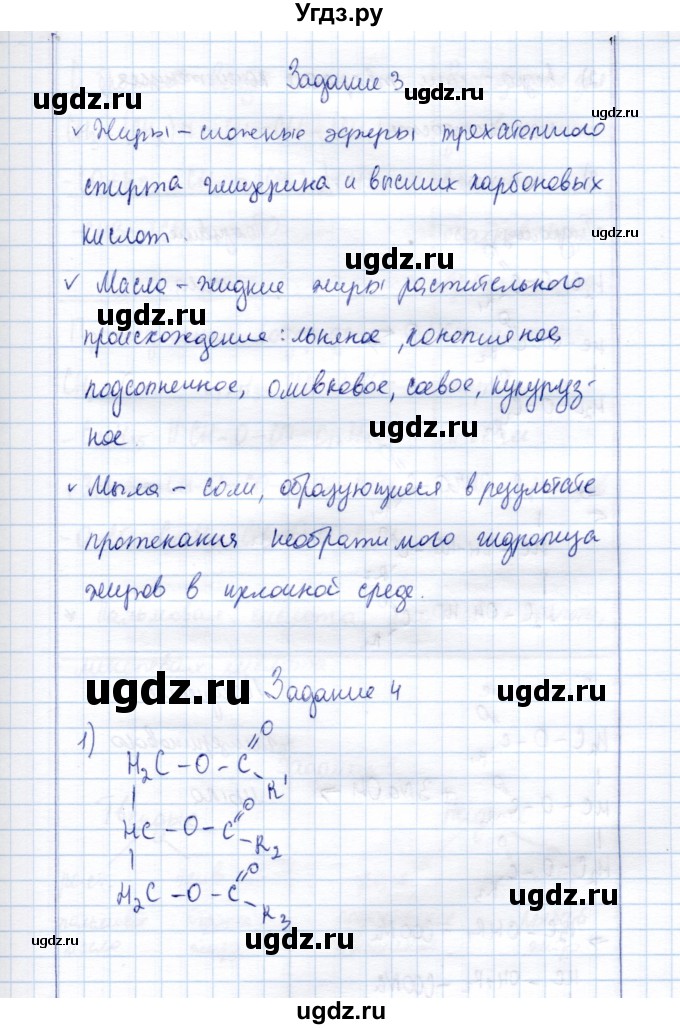 Угдз.ру
Задание 3
ugdz.ru
ugdz.ru
v Жиры – сложные эфиры трехатомного
спирта глицерина и высших карбоновых
кислот.
ugdz.ru
v Масла – жидкие жиры растительного
ugdz.ru
происхождение: льняное, конопляное,
подсолнечное, оливковое, соевое, кукуруз-
ugdz.ru
ное.
v Мыла – соли, образующиеся в результате
протекания необратимого гидролиза
жиров в щелочной среде.
ugdz.ru
Задание 4
ugdz.ru
1)
H₂C – O – C =O
R¹
|
HC – O – C =O
R₂
|
H₂C – O – C =O
R₃
ugdz.ru
ugdz.ru
ugdz.ru
ugdz.ru
ugdz.ru